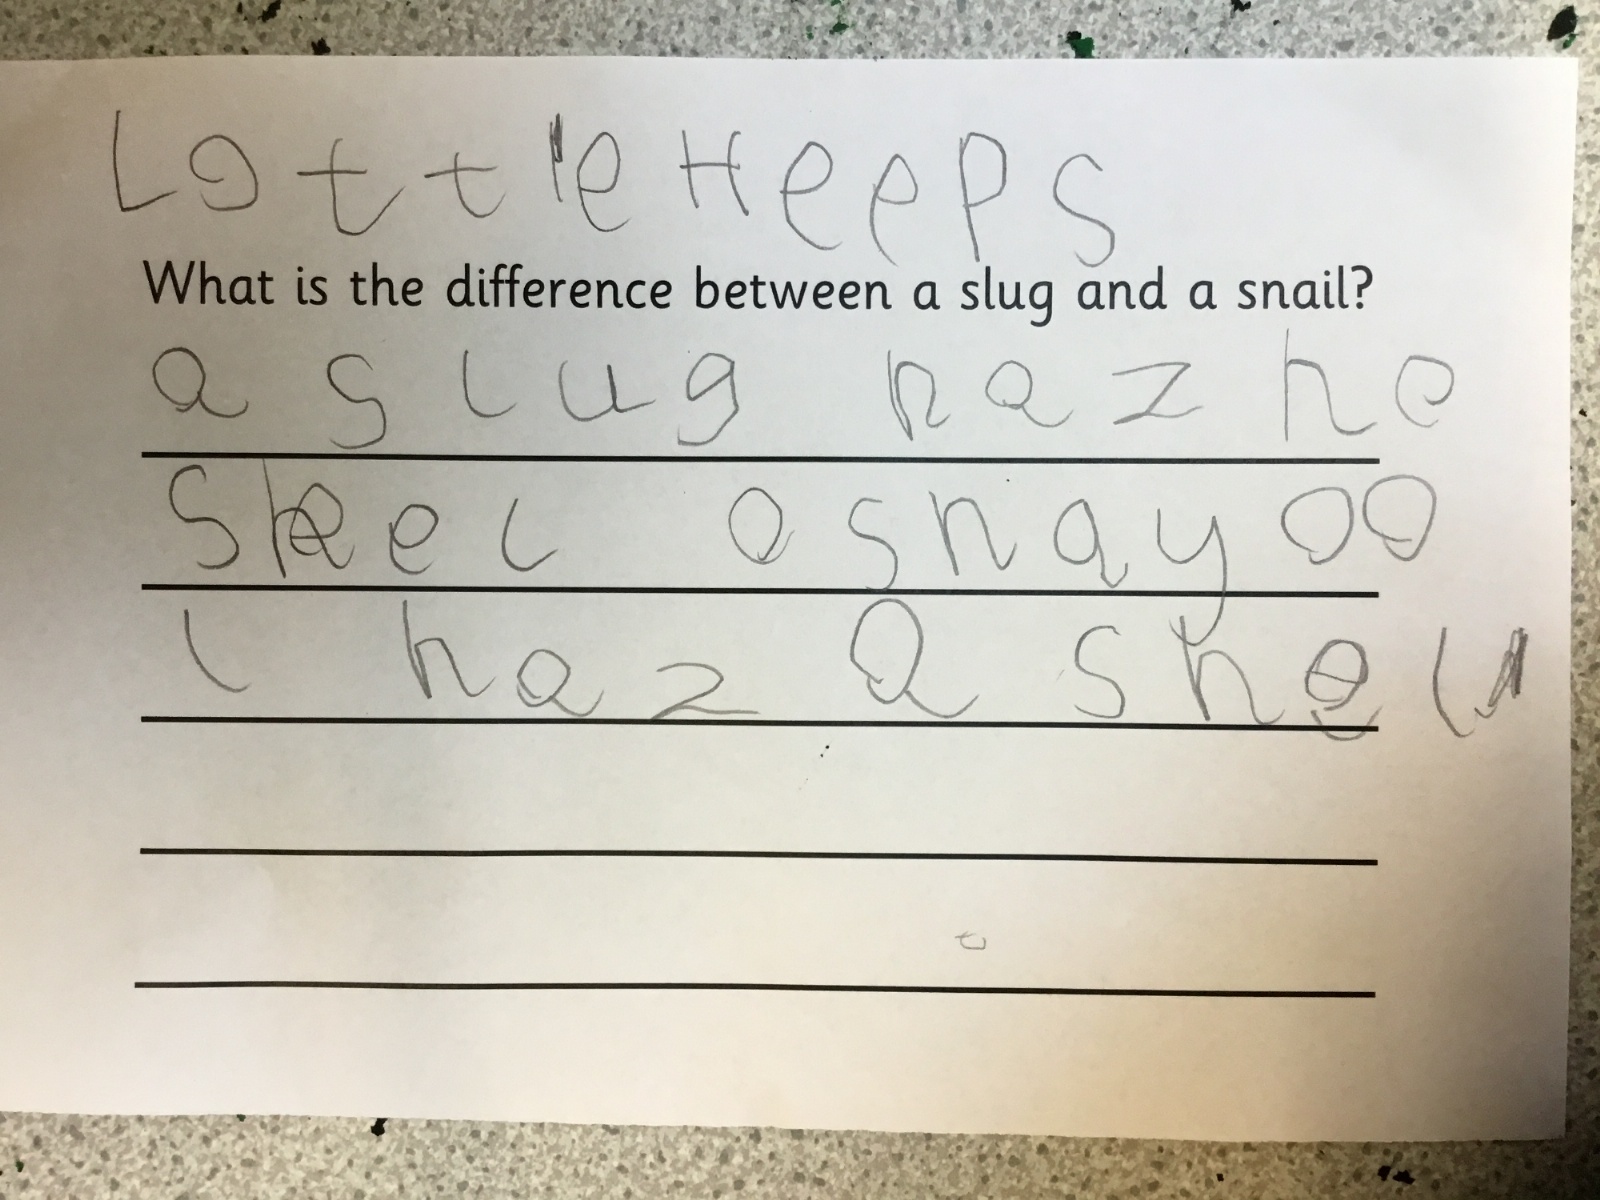 Lottie Heeps
What is the difference between a slug and a snail?
a slug haz no
Sheel a snayoo
l haz a shell